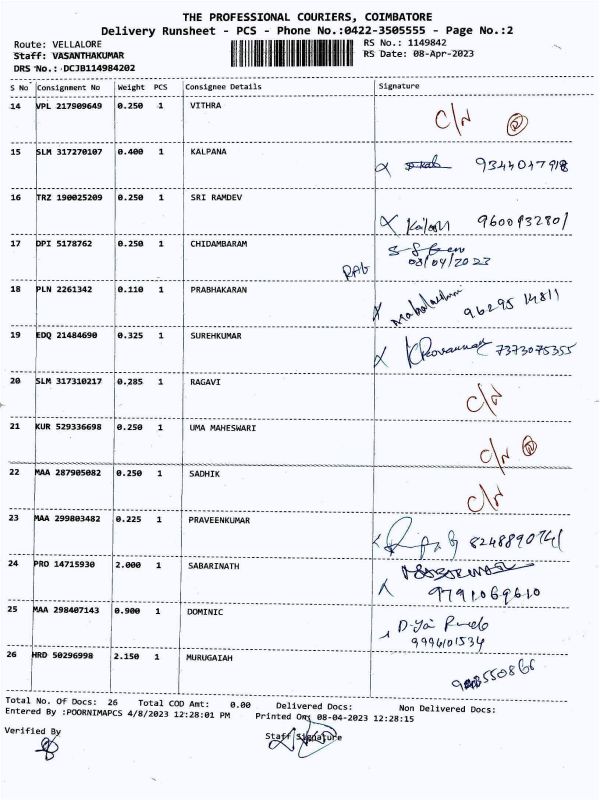 THE PROFESSIONAL COURIERS, COIMBATORE
Delivery Runsheet - PCS - Phone No.:0422-3505555 - Page No.:2
Route: VELLALORE RS No.: 1149842
Staff: VASANTHAKUMAR RS Date: 08-Apr-2023
DRS No.: DCJB114984202
S No Consignment No Weight PCS Consignee Details Signature
14 VPL 217909649 0.250 1 VITHRA C/N
15 SLM 317270107 0.400 1 KALPANA 9344047918
16 TRZ 190025209 0.250 1 SRI RAMDEV 9600932801
17 DPI 5178762 0.250 1 CHIDAMBARAM
08/04/2023
18 PLN 2261342 0.110 1 PRABHAKARAN 96295 14811
19 EDQ 21484690 0.325 1 SUREHKUMAR 7373075355
20 SLM 317310217 0.285 1 RAGAVI C/N
21 KUR 529336698 0.250 1 UMA MAHESWARI C/N
22 MAA 287905082 0.250 1 SADHIK C/N
23 MAA 299803482 0.225 1 PRAVEENKUMAR 8248890741
24 PRD 14715930 2.000 1 SABARINATH
9791069610
25 MAA 298407143 0.900 1 DOMINIC
9994101534
26 HRD 50296998 2.150 1 MURUGAIAH
Total No. Of Docs: 26 Total COD Amt: 0.00 Delivered Docs: Non Delivered Docs:
Entered By :POORNIMAPCS 4/8/2023 12:28:01 PM Printed On: 08-04-2023 12:28:15
Verified By Staff Signature